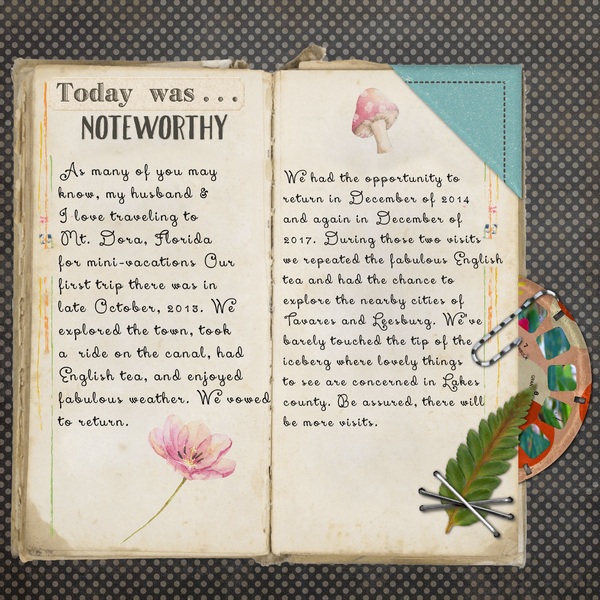 Today was . . .
NOTEWORTHY
As many of you may
know, my husband &
I love traveling to
Mt. Dora, Florida
for mini-vacations Our
first trip there was in
late October, 2013. We
explored the town, took
a ride on the canal, had
English tea, and enjoyed
fabulous weather. We vowed
to return.
We had the opportunity to
return in December of 2014
and again in December of
2017. During those two visits
we repeated the fabulous English
tea and had the chance to
explore the nearby cities of
Tavares and Leesburg. We've
barely touched the tip of the
iceberg where lovely things
to see are concerned in Lakes
county. Be assured, there will
be more visits.